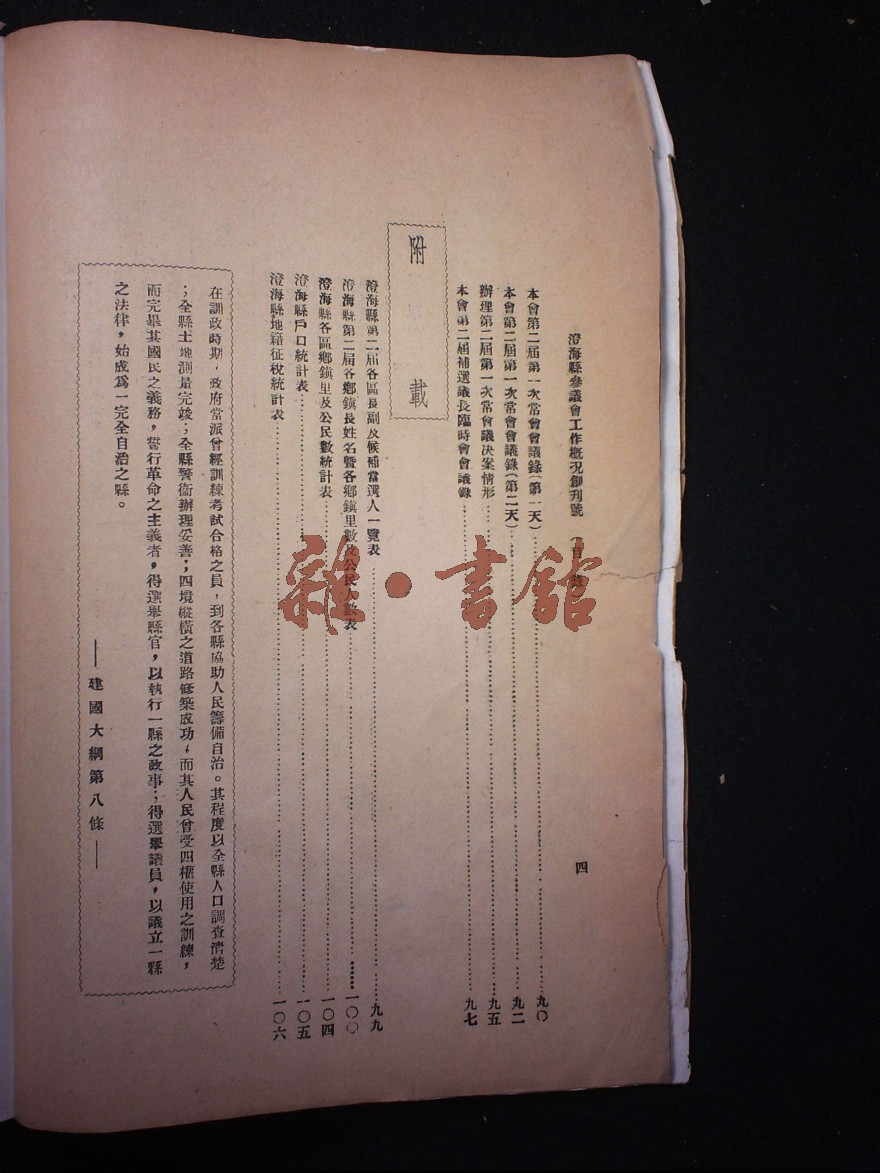 澄海縣參議會工作概况創刊號 (目錄)
四
本會第二屆第一次常會會議錄(第一天)……九〇
本會第二屆第一次常會會議錄(第二天)……九二
辦理第二屆第一次常會議决案情形……九五
本會第二屆補選議長臨時會會議錄……九七
附 載
澄海縣第二屆各區長副及候補當選人一覽表……九九
澄海縣第二屆各鄉鎮長姓名暨各鄉鎮里數及公民人數表……一〇〇
澄海縣各區鄉鎮里及公民數統計表……一〇四
澄海縣戶口統計表……一〇五
澄海縣地籍征稅統計表……一〇六
在訓政時期,政府當派曾經訓練考試合格之員,到各縣協助人民籌備自治。其程度以全縣人口調查清楚
;全縣土地測量完竣;全縣警衞辦理妥善;四境縱橫之道路修築成功,而其人民曾受四權使用之訓練,
而完畢其國民之義務,誓行革命之主義者,得選舉縣官,以執行一縣之政事;得選舉議員,以議立一縣
之法律,始成爲一完全自治之縣。
——建國大綱第八條——
雜·書館